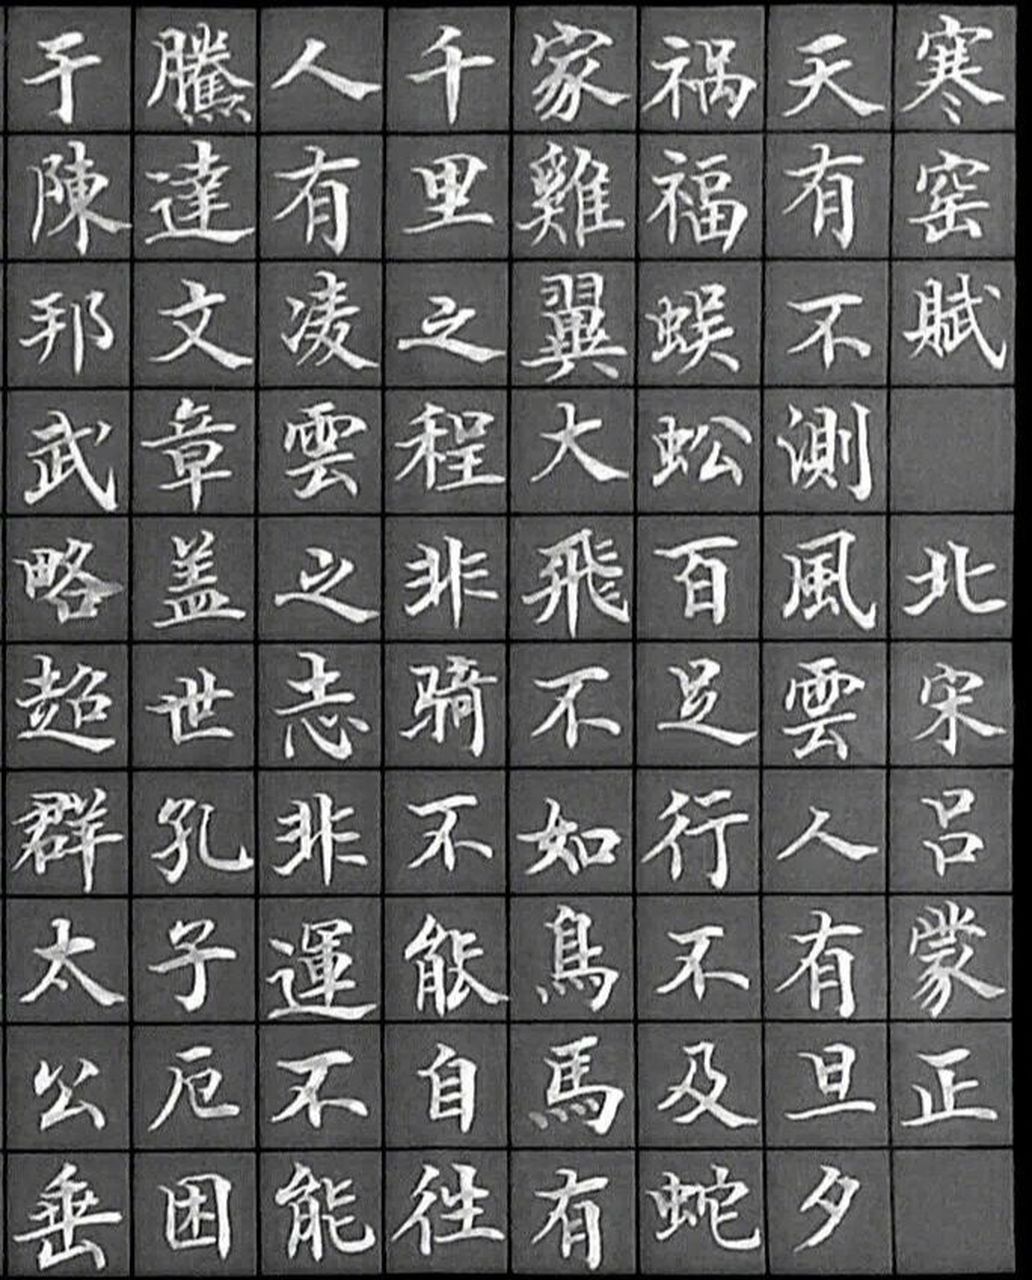 寒窑賦 北宋吕蒙正
天有不測風雲人有旦夕
祸福蜈蚣百足行不及蛇
家雞翼大飛不如鳥馬有
千里之程非騎不能自往
人有凌雲之志非運不能
騰達文章盖世孔子厄困
于陳邦武略超群太公垂